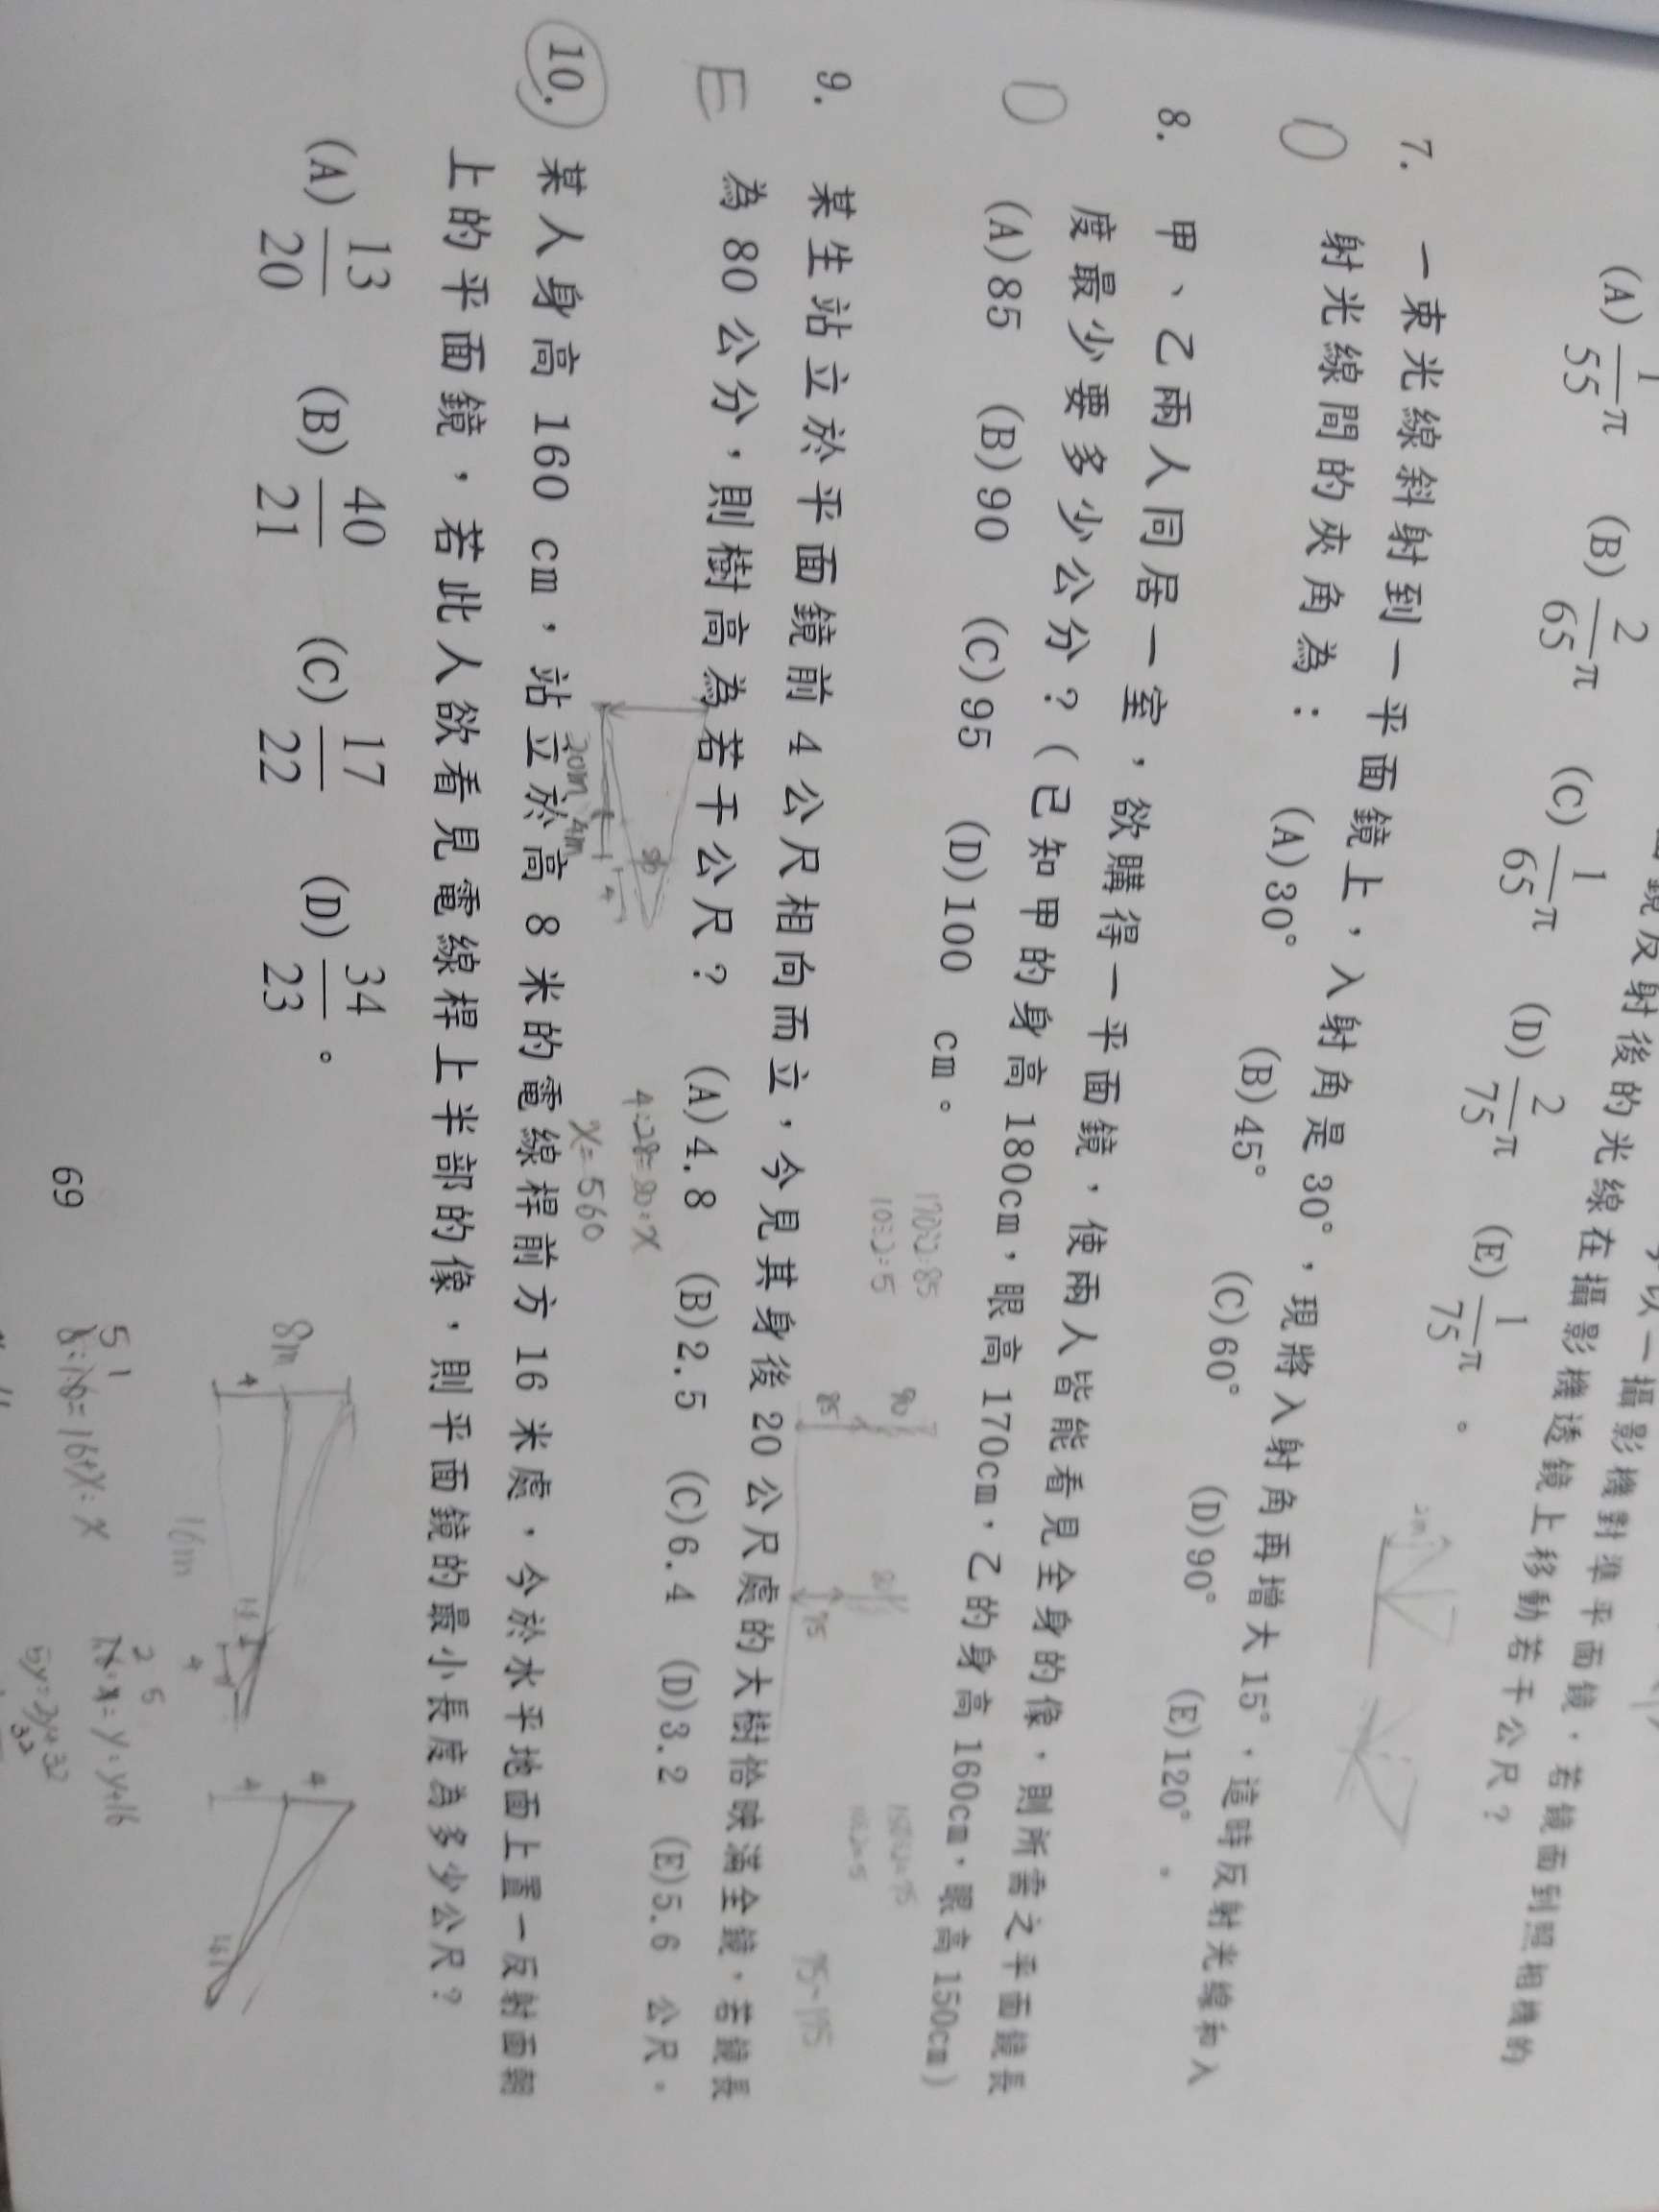 鏡反射後的光線在攝影機透鏡上移動若干公尺？
以一攝影機對準平面鏡，若鏡面到照相機的
(A) 1/55 π (B) 2/65 π (C) 1/65 π (D) 2/75 π (E) 1/75 π 。
2m
7. 一束光線斜射到一平面鏡上，入射角是30°，現將入射角再增大15°，這時反射光線和入
D
射光線間的夾角為： (A)30° (B)45° (C)60° (D)90° (E)120° 。
8. 甲、乙兩人同居一室，欲購得一平面鏡，使兩人皆能看見全身的像，則所需之平面鏡長
D
度最少要多少公分？(已知甲的身高180cm，眼高170cm，乙的身高160cm，眼高150cm)
(A)85 (B)90 (C)95 (D)100 cm。
170÷2=85
10÷2=5
90
85
80
75
75~175
9. 某生站立於平面鏡前4公尺相向而立，今見其身後20公尺處的大樹恰映滿全鏡，若鏡長
E
為80公分，則樹高為若干公尺？ (A)4.8 (B)2.5 (C)6.4 (D)3.2 (E)5.6 公尺。
80
20m 4m 4
4:28=80:x
x=560
10. 某人身高160 cm，站立於高8米的電線桿前方16米處，今於水平地面上置一反射面朝
上的平面鏡，若此人欲看見電線桿上半部的像，則平面鏡的最小長度為多少公尺？
(A) 13/20 (B) 40/21 (C) 17/22 (D) 34/23 。
8m
4
16m
4
4
4
5 1
8:1.6=16+x:x
2 5
y:y+16
5y=2y+32
69